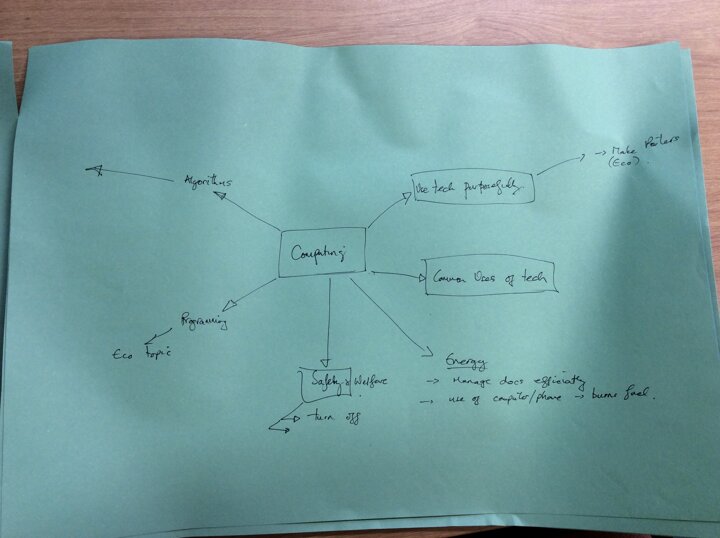 → Make Posters
(Eco).
Use tech purposefully.
Algorithms
Computing
Common Uses of tech
Programming
Eco topic
Energy
→ Manage docs efficiently
→ use of computer/phone → burns fuel.
Safety & Welfare
→ turn off